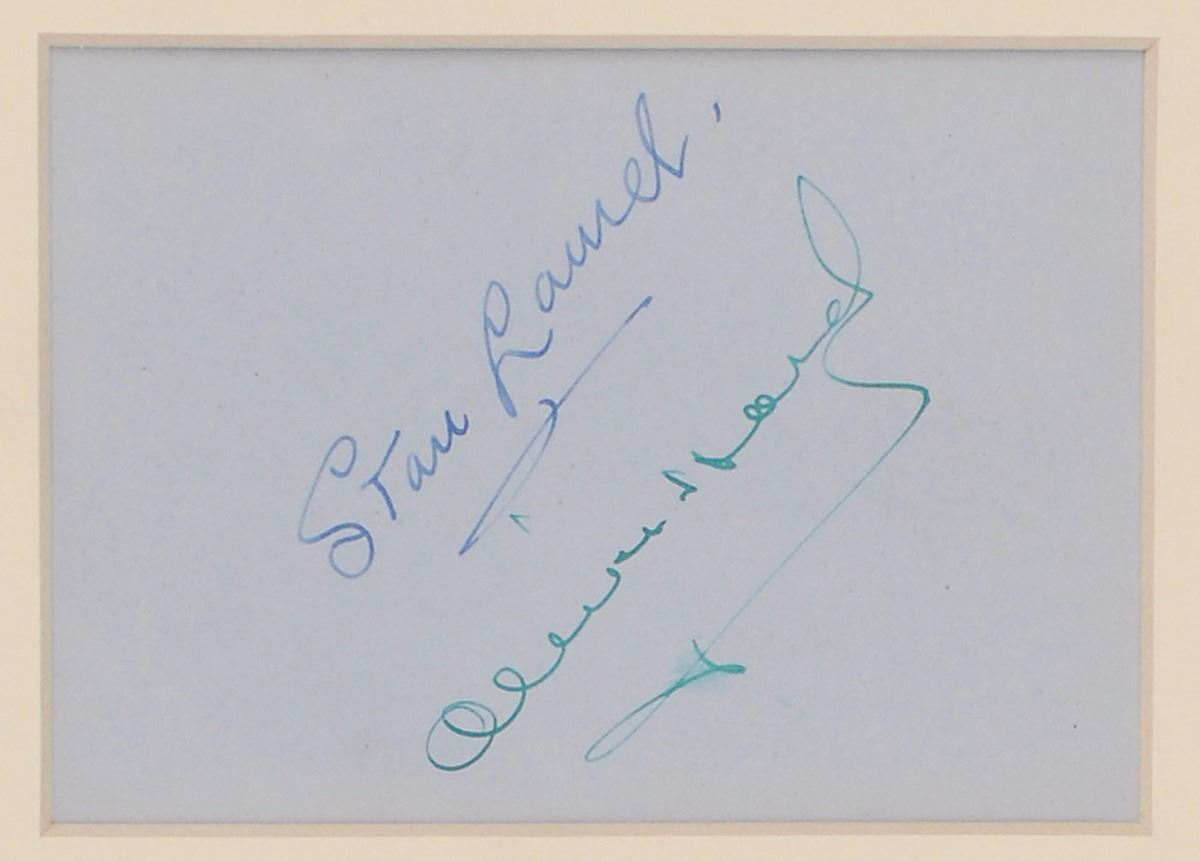 Stan Laurel.
Oliver Hardy